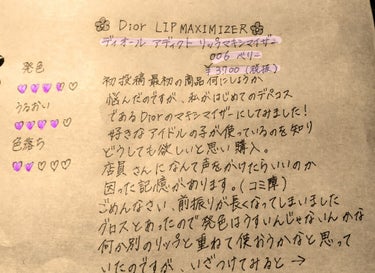 ❀ Dior LIP MAXIMIZER ❀
ディオール アディクト リップ マキシマイザー
006 ベリー
¥3700 (税抜)
発色
♥♥♥♥♡
うるおい
♥♥♥♥♡
色落ち
♥♥♡♡♡
初投稿最初の商品何にしようか
悩んだのですが、私がはじめてのデパコス
であるDiorのマキシマイザーにしてみました!
好きなアイドルの子が使っているのを知り
どうしても欲しいと思い購入。
店員さんになんて声をかけたらいいのか
困った記憶があります。(コミ障)
ごめんなさい、前振りが長くなってしまいました
グロスとあったので発色はうすいんじゃないかな
何か別のリップと重ねて使おうかなと思って
いたのですが、いざつけてみると→